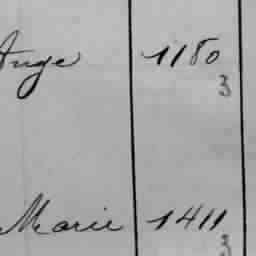 Ange 1180
3
Marie 1411
3